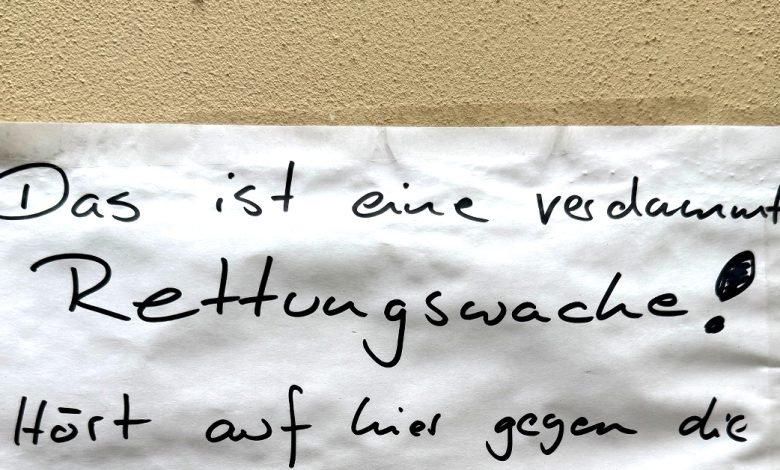 Das ist eine verdammt
Rettungswache!
Hört auf hier gegen die